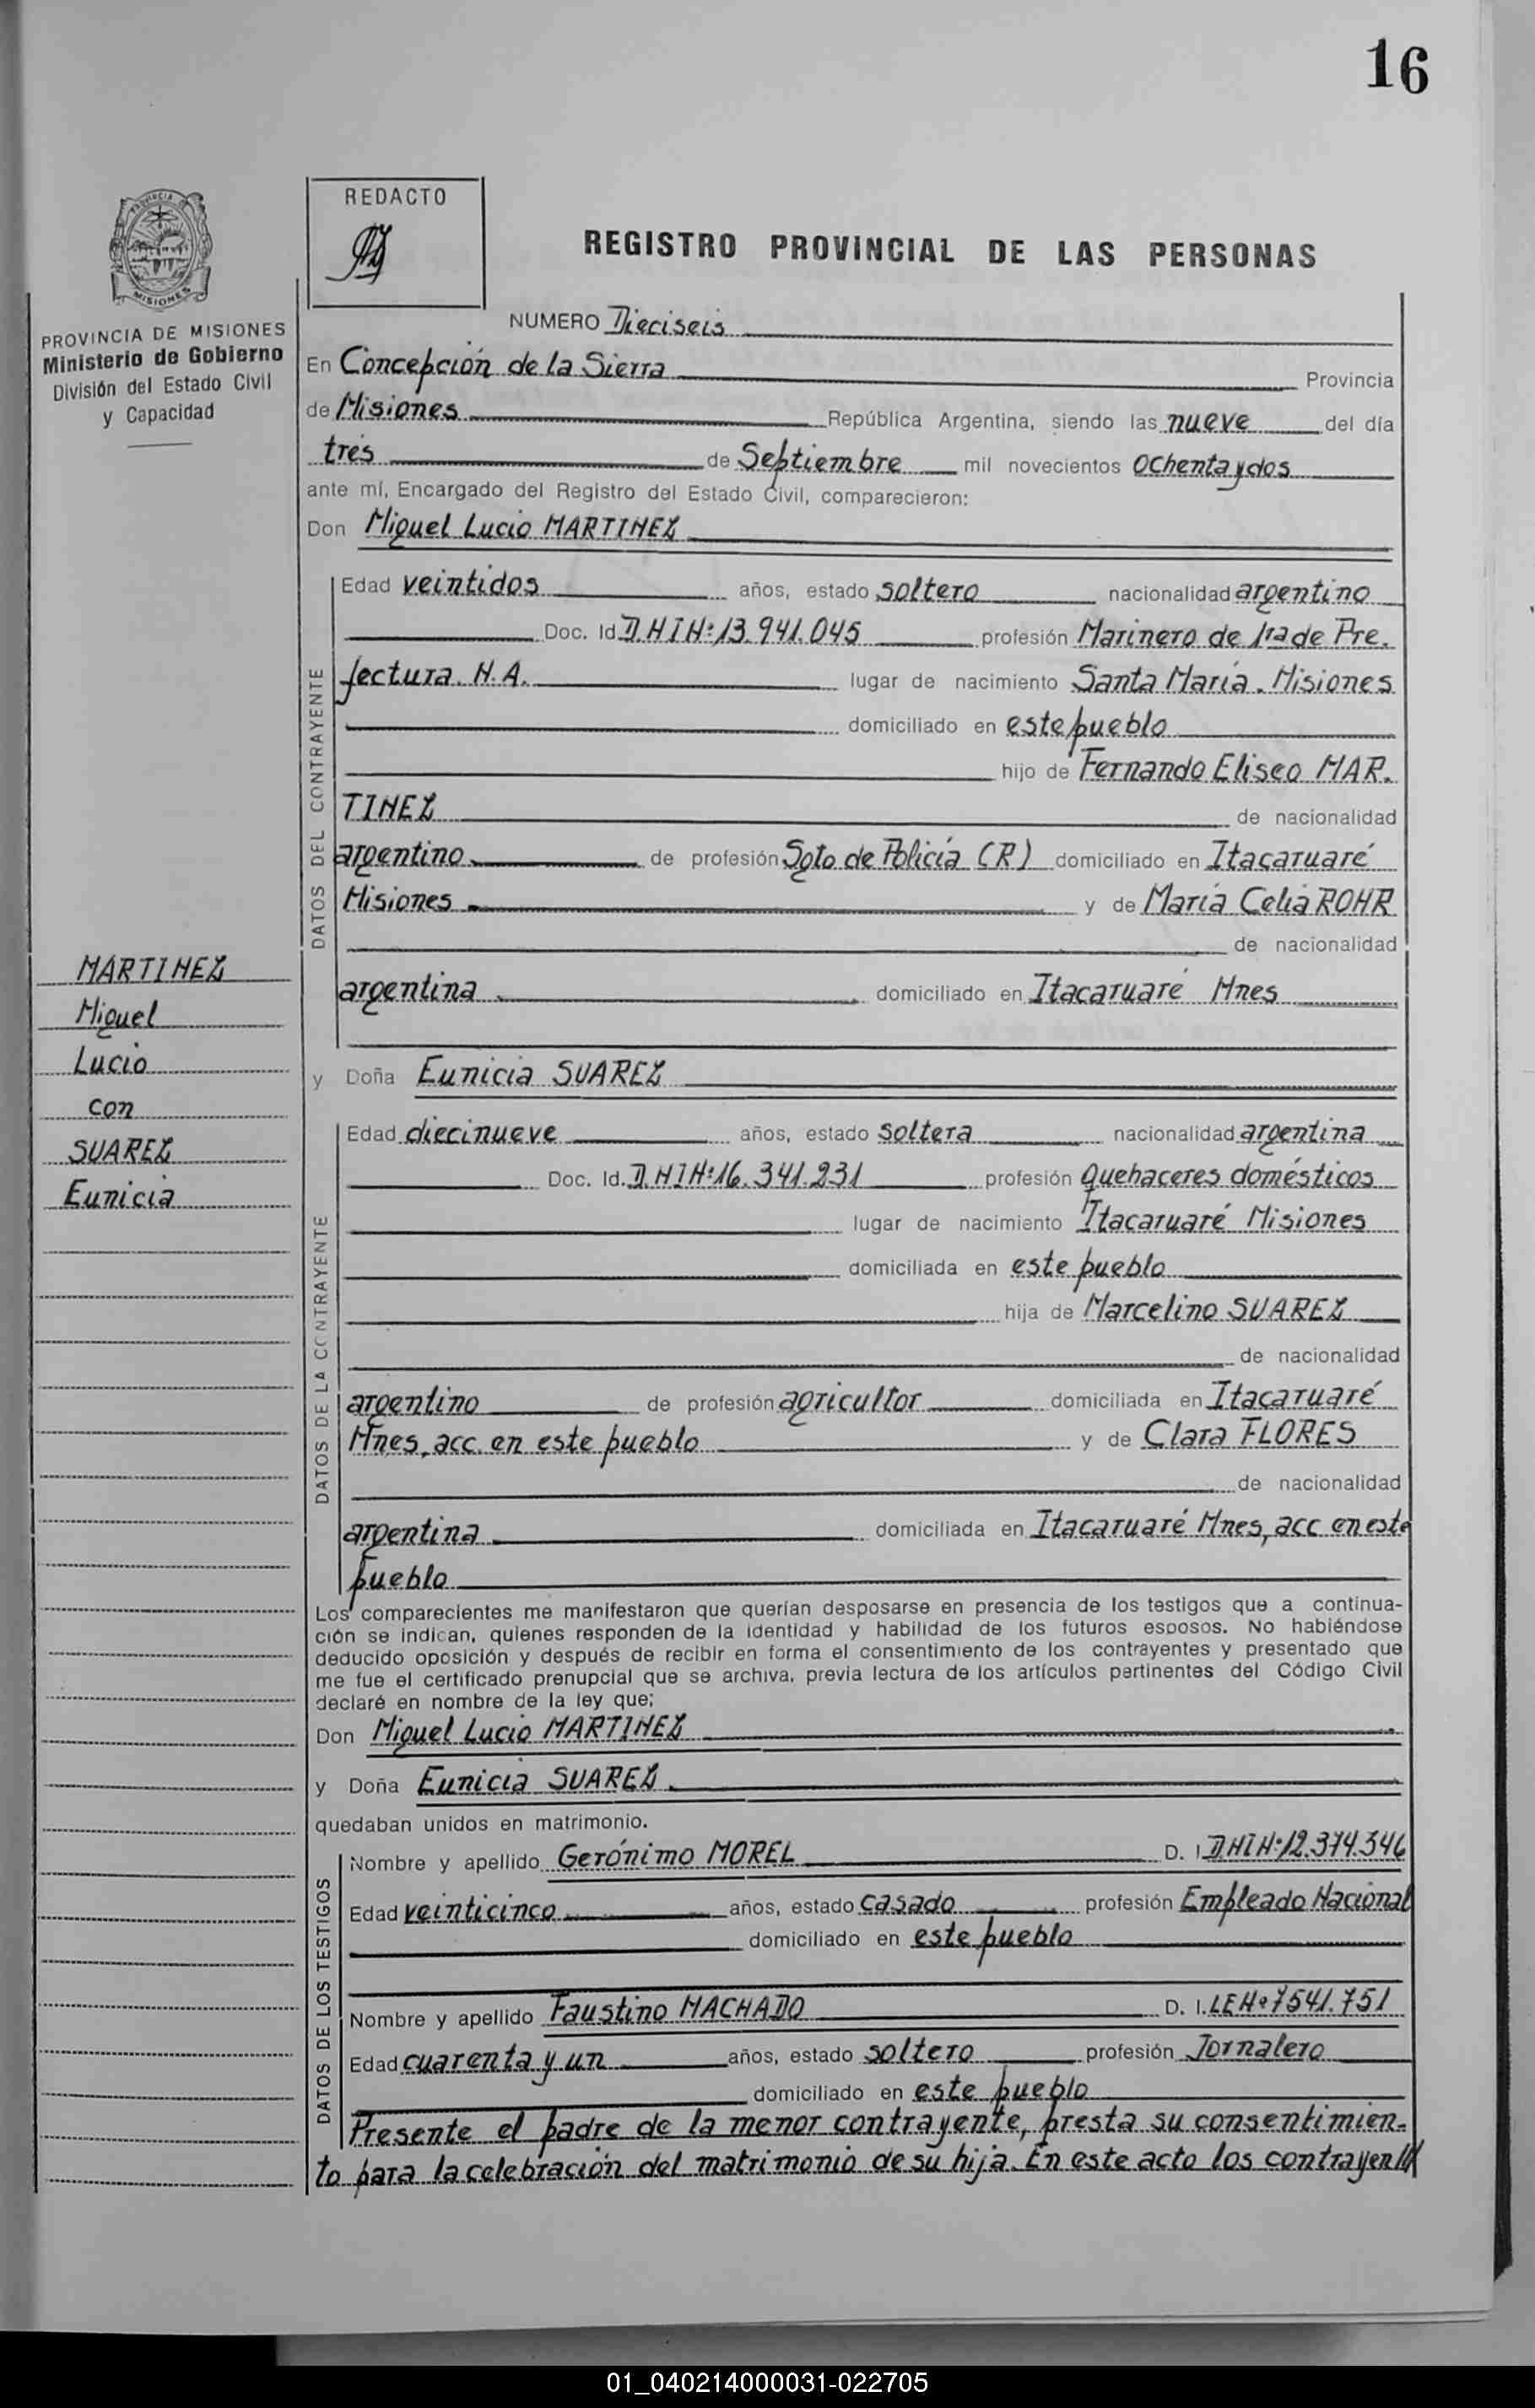 16
REDACTO
REGISTRO PROVINCIAL DE LAS PERSONAS
PROVINCIA DE
MISIONES
PROVINCIA DE MISIONES
Ministerio de Gobierno
División del Estado Civil
y Capacidad
NUMERO Dieciseis
En Concepción de la Sierra Provincia
de Misiones República Argentina, siendo las nueve del día
tres de Septiembre mil novecientos Ochenta y dos
ante mí, Encargado del Registro del Estado Civil, comparecieron:
Don Miguel Lucio MARTINEZ
DATOS DEL CONTRAYENTE
Edad veintidos años, estado soltero nacionalidad argentino
Doc. Id. D.N.I Nº: 13.941.045 profesión Marinero de 1ra de Pre.
fectura. N.A. lugar de nacimiento Santa María. Misiones
domiciliado en este pueblo
hijo de Fernando Eliseo MAR.
TINEZ de nacionalidad
argentino de profesión Sgto de Policía (R) domiciliado en Itacaruaré
Misiones y de María Celia ROHR
de nacionalidad
argentina domiciliado en Itacaruaré Mnes
MARTINEZ
Miguel
Lucio
con
SUAREZ
Eunicia
y Doña Eunicia SUAREZ
DATOS DE LA CONTRAYENTE
Edad diecinueve años, estado soltera nacionalidad argentina
Doc. Id. D.N.I Nº: 16.341.231 profesión Quehaceres domésticos
lugar de nacimiento Itacaruaré Misiones
domiciliada en este pueblo
hija de Marcelino SUAREZ
de nacionalidad
argentino de profesión agricultor domiciliada en Itacaruaré
Mnes, acc. en este pueblo y de Clara FLORES
de nacionalidad
argentina domiciliada en Itacaruaré Mnes, acc en este
pueblo
Los comparecientes me manifestaron que querían desposarse en presencia de los testigos que a continua-
ción se indican, quienes responden de la identidad y habilidad de los futuros esposos. No habiéndose
deducido oposición y después de recibir en forma el consentimiento de los contrayentes y presentado que
me fue el certificado prenupcial que se archiva, previa lectura de los artículos pertinentes del Código Civil
declaré en nombre de la ley que;
Don Miguel Lucio MARTINEZ
y Doña Eunicia SUAREZ.
quedaban unidos en matrimonio.
DATOS DE LOS TESTIGOS
Nombre y apellido Gerónimo MOREL D. I D.N.I Nº: 12.374.346
Edad veinticinco años, estado casado profesión Empleado Nacional
domiciliado en este pueblo
Nombre y apellido Faustino MACHADO D. I. LE Nº 7541.751
Edad cuarenta y un años, estado soltero profesión Jornalero
domiciliado en este pueblo
Presente el padre de la menor contrayente, presta su consentimien-
to para la celebración del matrimonio de su hija. En este acto los contrayen//
01_040214000031-022705